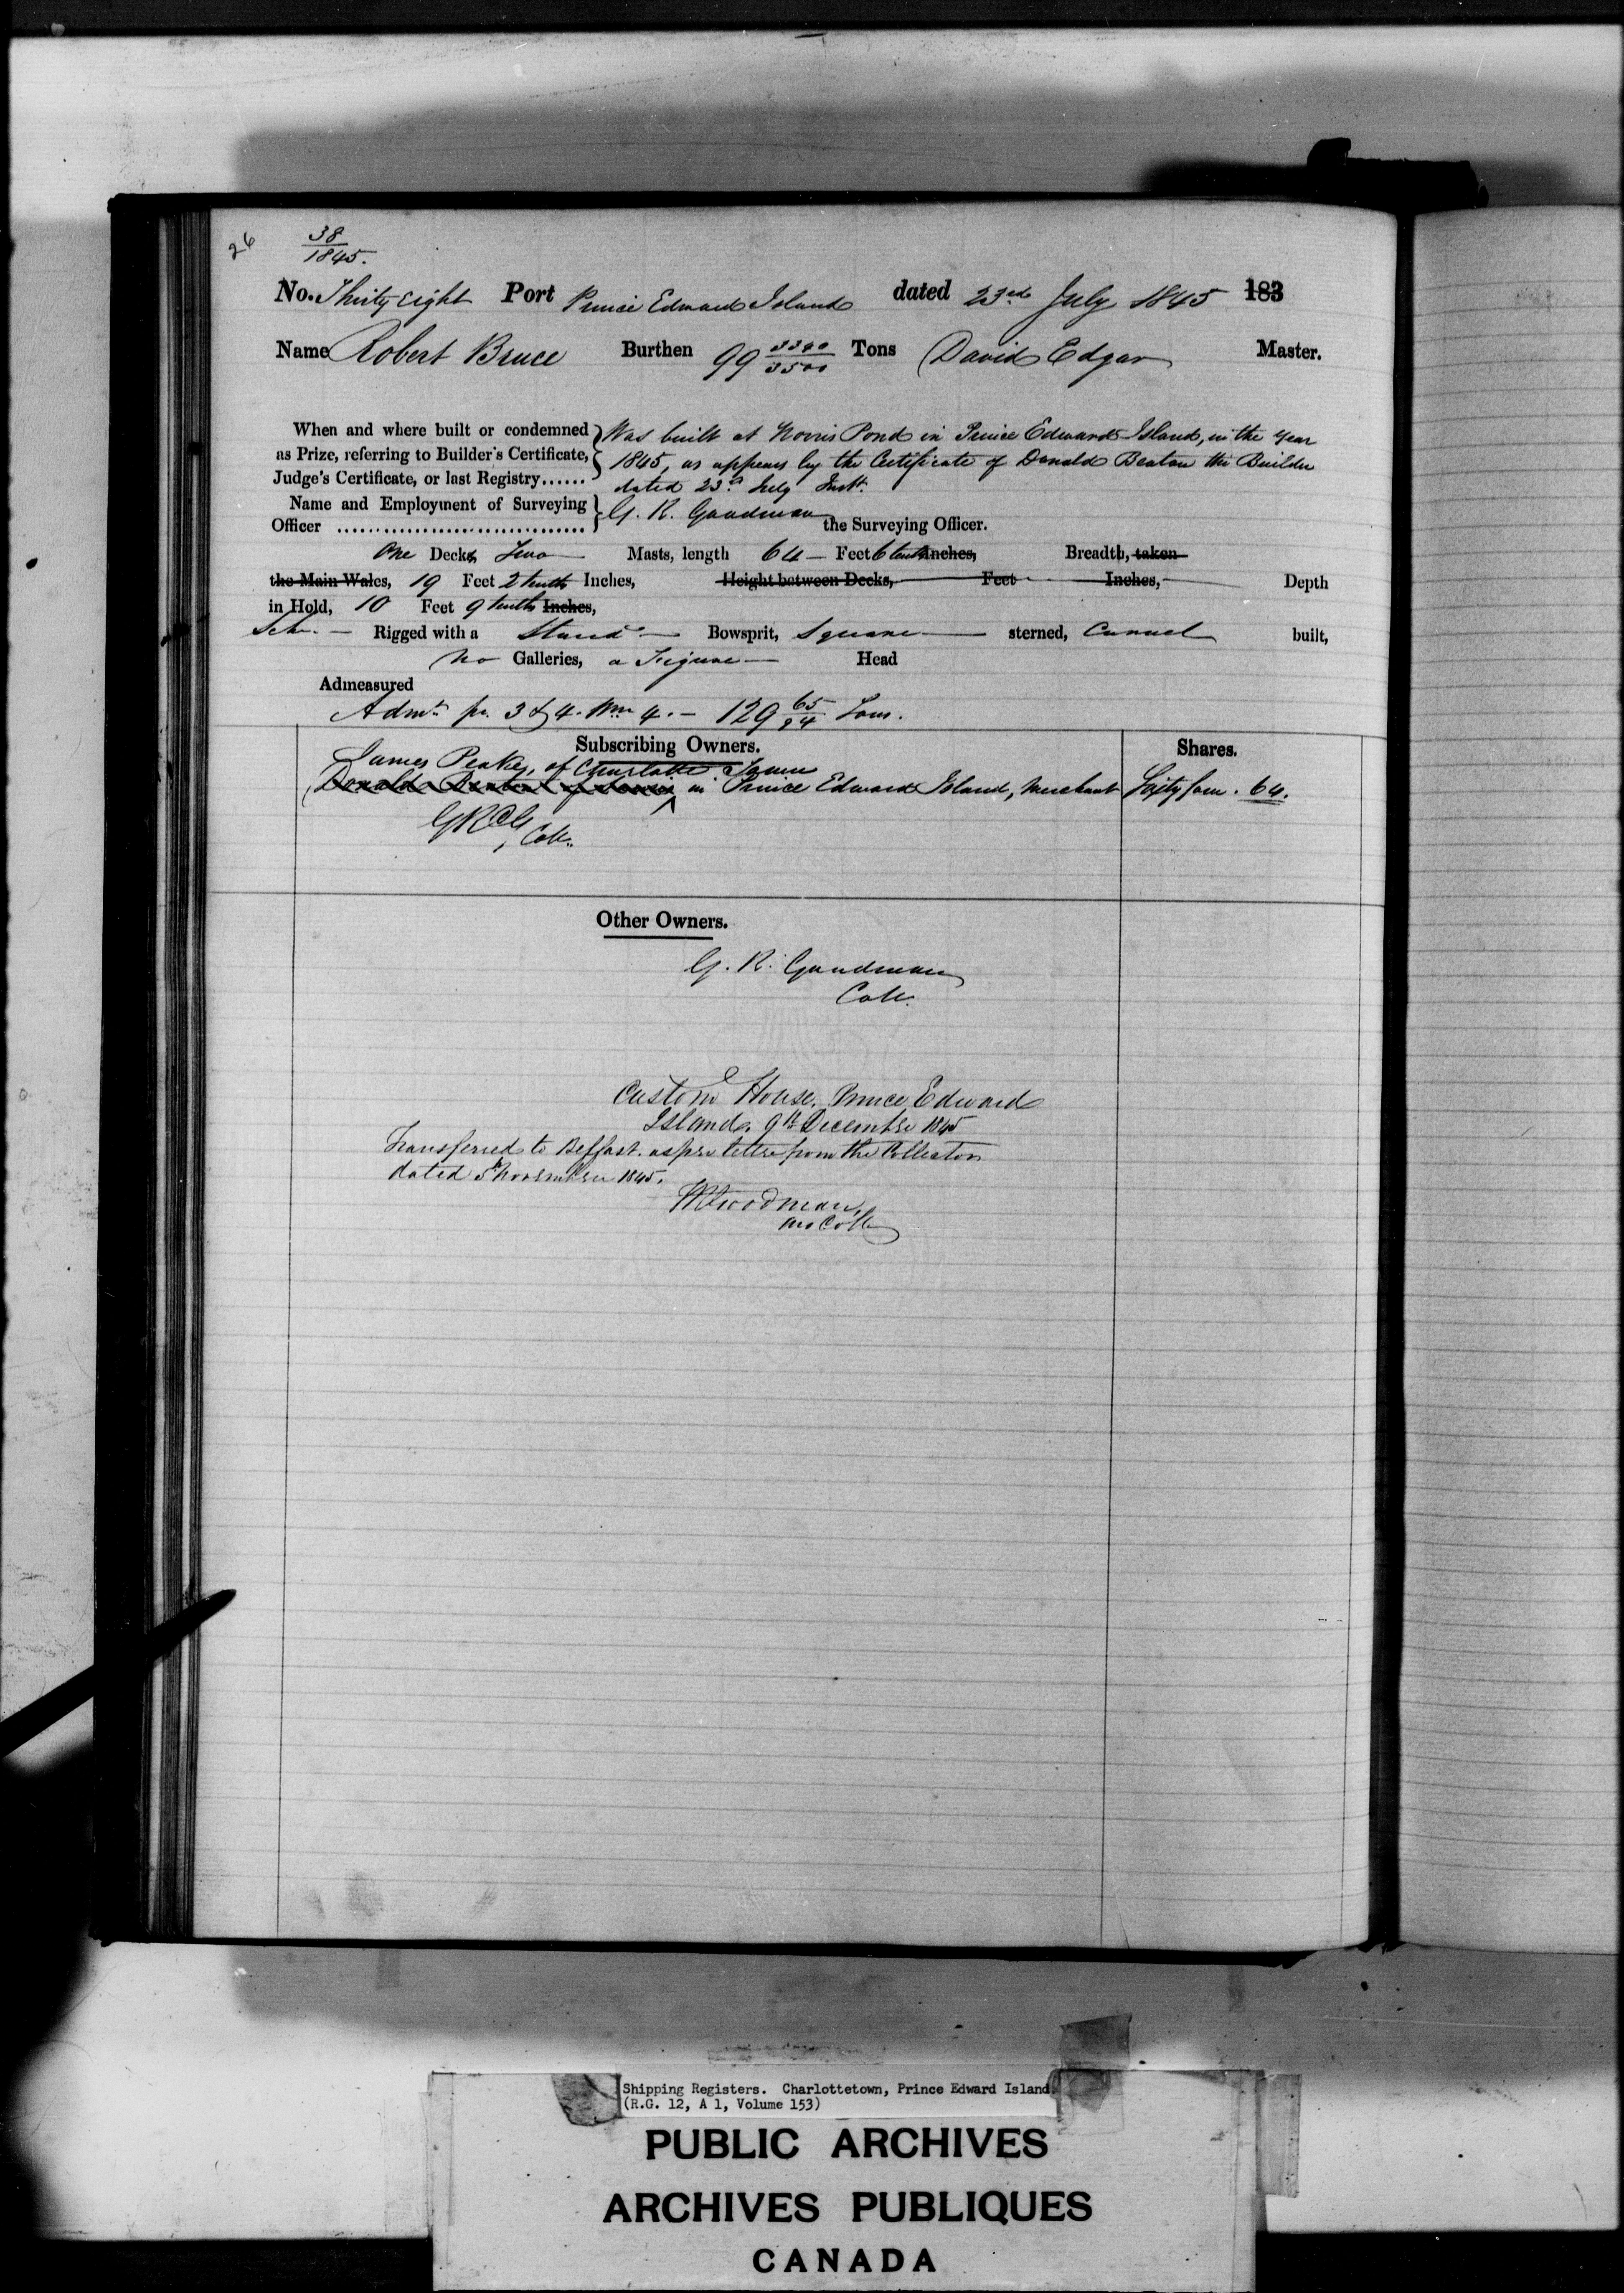 26
38
1845.
No. Thirty Eight Port Prince Edward Island dated 23rd July 1845 183
Name Robert Bruce Burthen 99 3500 Tons David Edgar Master.
When and where built or condemned Was built at Norris Pond in Prince Edward Island, in the Year
as Prize, referring to Builder's Certificate, 1845, as appears by the Certificate of Donald Beaton the Builder
Judge's Certificate, or last Registry...... dated 23d July Inst.
Name and Employment of Surveying
Officer ................................ G. R. Goodman the Surveying Officer.
One Decks, Two Masts, length 64 Feet 6 tenths Inches, Breadth, taken
the Main Wales, 19 Feet 2 tenths Inches, Height between Decks, Feet Inches, Depth
in Hold, 10 Feet 9 tenths Inches,
Schr. Rigged with a Standg Bowsprit, Square sterned, Carvel built,
No Galleries, a Figure Head
Admeasured
Admt. pr. 3 & 4 Wm 4. - 129 65/94 Tons.
Subscribing Owners. Shares.
James Peake, of Charlotte Town
Donald Beaton of in Prince Edward Island, Merchant Sixty four. 64.
GRG, Collr.
Other Owners.
G. R. Goodman
Collr.
Custom House, Prince Edward
Island, 9th December 1845
Transferred to Belfast as per letter from the Collector
dated 5th November 1845.
Goodman,
Collr
Shipping Registers. Charlottetown, Prince Edward Island
(R.G. 12, A 1, Volume 153)
PUBLIC ARCHIVES
ARCHIVES PUBLIQUES
CANADA